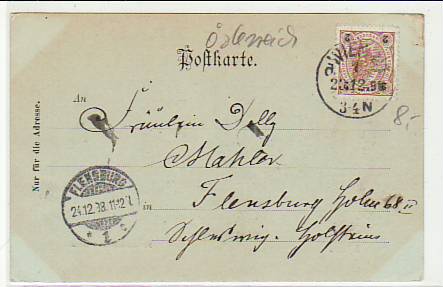 Österreich
Postkarte.
2
2
WIEN
3-4N
8.-
An
Fräulein Dolly
Mahler
FLENSBURG
24.12.98.11-12V
* 1 c
in
Flensburg Holm 68 II
Schleswig-Holstein
Nur für die Adresse.